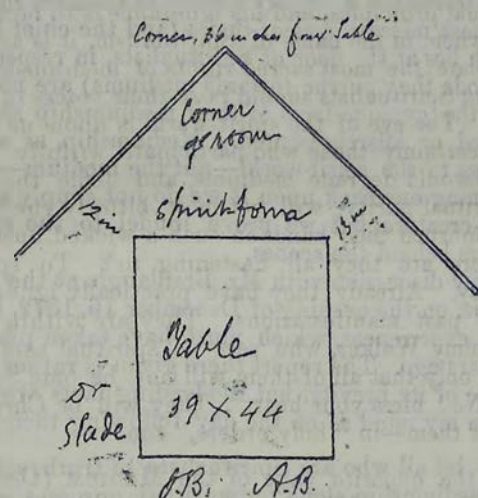 Corner, 36 inches from Table
Corner
of room
12 in
spirit form
13 in
Table
39 X 44
Dr
Slade
J.B. A.B.